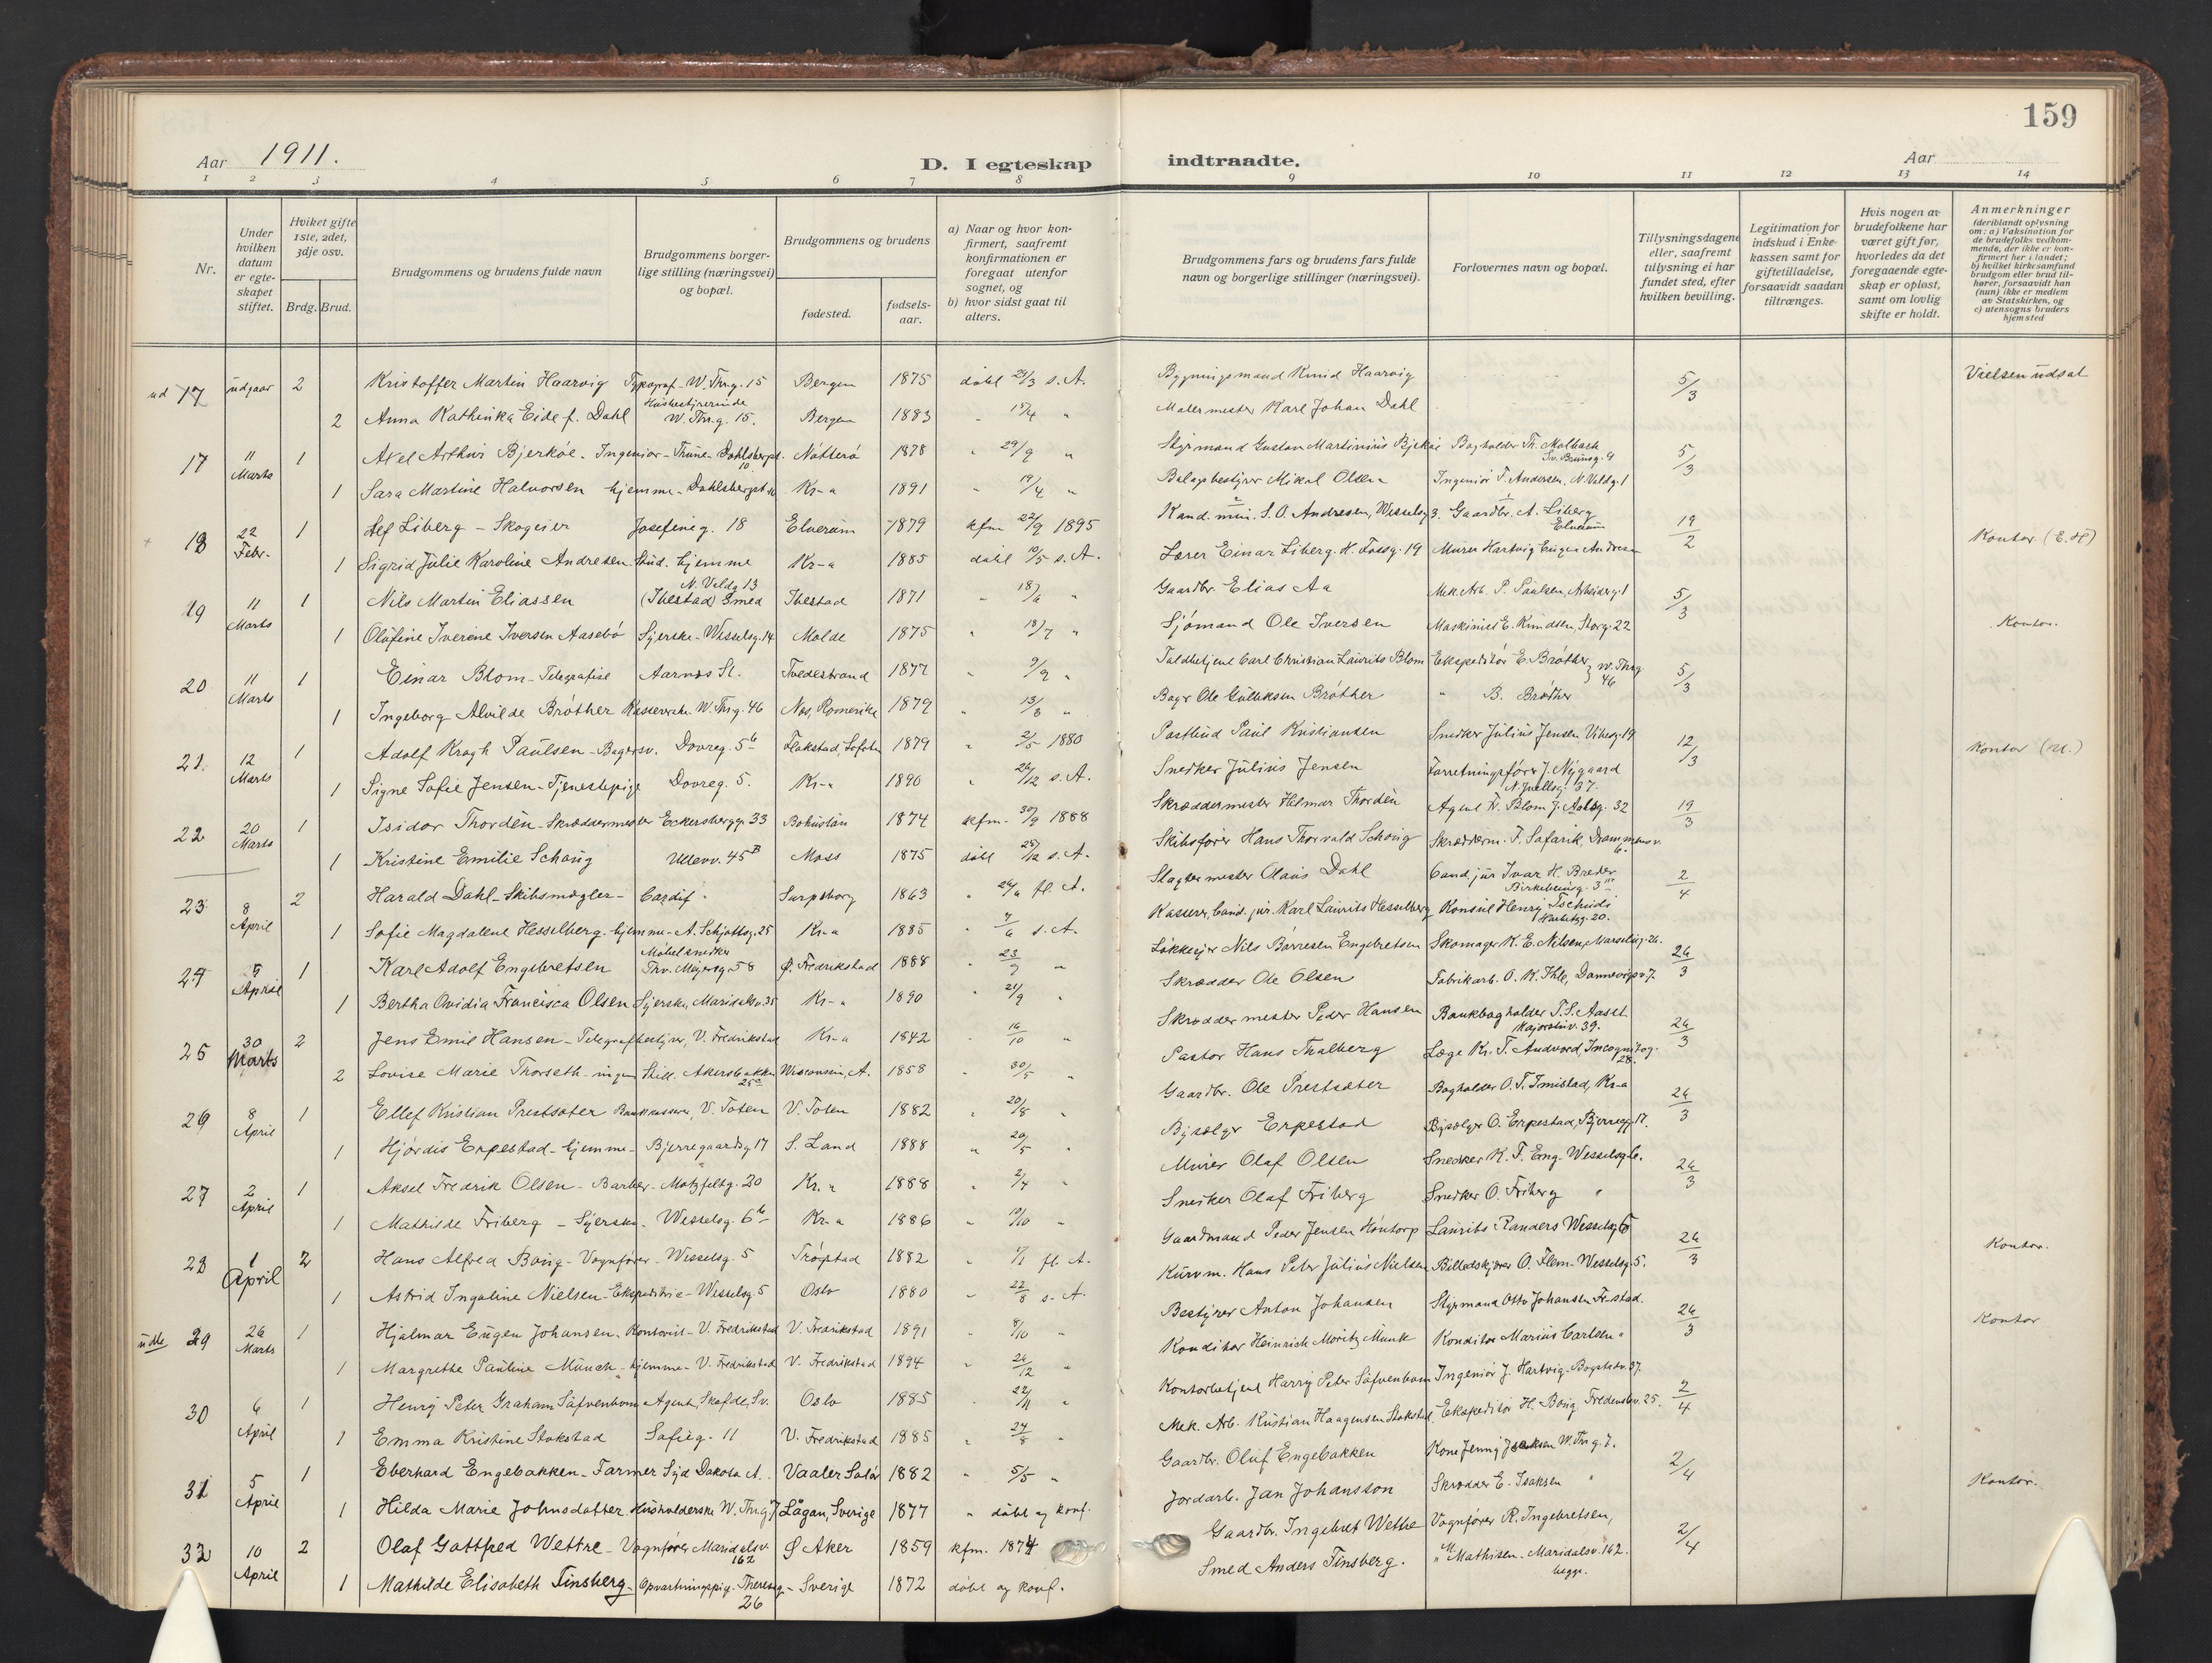 159
Aar 1911.
D. I egteskap indtraadte.
Aar
1 2 3 4 5 6 7 8 9 10 11 12 13 14
Nr.
Under hvilken datum er egteskapet stiftet.
Hviket gifte 1ste, 2det, 3dje osv.
Brdg. Brud.
Brudgommens og brudens fulde navn
Brudgommens borgerlige stilling (næringsvei) og bopæl.
Brudgommens og brudens
fødested.
fødselsaar.
a) Naar og hvor konfirmert, saafremt konfirmationen er foregaat utenfor sognet, og
b) hvor sidst gaat til alters.
Brudgommens fars og brudens fars fulde navn og borgerlige stillinger (næringsvei).
Forlovernes navn og bopæl.
Tillysningsdagene eller, saafremt tillysning ei har fundet sted, efter hvilken bevilling.
Legitimation for indskud i Enkekassen samt for giftetilladelse, forsaavidt saadan tiltrænges.
Hvis nogen av brudefolkene har været gift før, hvorledes da det foregaaende egteskap er opløst, samt om lovlig skifte er holdt.
Anmerkninger
(deriblandt oplysning om: a) Vaksination for de brudefolks vedkommende, der ikke er konfirmert her i landet; b) hvilket kirkesamfund brudgom eller brud tilhører, forsaavidt han (hun) ikke er medlem av Statskirken, og c) utensogns bruders hjemsted
ud 17 udgaar 2 Kristoffer Martin Haarvig Typograf W. Thrg. 15 Bergen 1875 døbt 29/3 s. A. Bygningsmand Knud Haarvig 5/3 Vielsen udsat
2 Anna Kathinka Eide f. Dahl Husbestyrerinde W. Thrg. 15. Bergen 1883 15/4 " Malermester Karl Johan Dahl
17 11 Marts 1 Axel Arthur Bjerköe - Ingeniør - Dahlsbergst. 10 Nötterö 1878 " 29/9 " Styrmand Gustav Martinius Bjerköe Bogholder Th. Molbach Sv. Brunsg. 9 5/3
1 Sara Martine Halvorsen hjemme - Dahlsbergst. 10 Kr-a 1891 " 19/4 " Mikal Olsen Ingeniør F. Andersen, N. Valdg. 1
18 22 Febr. 1 Alf Liberg - Skogeier Josefineg. 18 Elverum 1879 kfm 22/9 1895 Kand. min. S. O. Andresen, Wesselsg 3. Gaardbr. A. Liberg Elverum 19/2 Kontor (E. H)
1 Sigrid Julie Karoline Andresen Stud. hjemme Kr-a 1885 døbt 10/5 s. A. Lærer Einar Liberg. H. Fossg. 19 Murer Hartvig Eugen Andresen
19 11 Marts 1 Nils Martin Eliassen N. Valdg 13 (Ibestad) Smed Ibestad 1871 " 18/6 " Gaardbr. Elias Aa Mek. Arb. P. Paulsen, Arbeiderg. 1 5/3
1 Olufine Iverine Iversen Aasebö Syerske - Wesselsg. 14 Molde 1875 " 18/7 " Sjömand Ole Iversen Maskinist E. Knudsen, Storg. 22 Kontor.
20 11 Marts 1 Einar Blom - Telegrafist Aarnæs St. Tvedestrand 1877 9/9 " Toldbetjent Carl Christian Laurits Blom Ekspeditör E. Bröther } W. Thrg. 46 5/3
1 Ingeborg Alvilde Bröther Kassererske. W. Thrg. 46 Næs, Romerike 1879 " 13/8 " Bager Ole Gulliksen Bröther " B. Bröther
21. 12 Marts 1 Adolf Krogh Paulsen - Bagersv. Dovreg. 5 b Flakstad, Lofoten 1879 " 2/5 1880 Postbud Paul Kristiansen Snedker Julius Jensen Vibesg. 19 12/3 Kontor (U.)
1 Signe Sofie Jensen - Tjenestepige Dovreg. 5. Kr-a 1890 " 26/12 s. A. Snedker Julius Jensen Forretningsförer J. Nygaard N. Juellsg. 37.
22 20 Marts 1 Isidor Thordén - Skræddermester Eckersbergg. 33 Bohuslän 1874 kfm. 30/9 1888 Skræddermester Helmar Thordén Agent F. Blom J. Aallsg. 32 19/3
1 Kristine Emilie Schoug Ullevv. 45 B Moss 1875 døbt 25/12 s. A. Skibsfører Hans Thorvald Schoug Skrædderm. F. Safarik, Drammensv. 6.
23 8 April 2 Harald Dahl - Skibsmægler - Cardif. Sarpsborg 1863 " 26/6 fl. A. Slagtermester Olaus Dahl Cand. jur Ivar H. Breder Birkebeinerg. 3 III 2/4
1 Sofie Magdalene Hesselberg. hjemme - A. Schjøttsg. 25 Kr-a 1885 " 7/6 s. A. Kasserer, Cand. jur. Karl Laurits Hesselberg Konsul Henry Tschudi Harbitzg. 20.
24 5 April 1 Karl Adolf Engebretsen Møbelsnedker Thv. Meyersg 58 Ø. Fredrikstad 1888 " 23/7 " Løkkeeier Nils Børresen Engebretsen Skomager K. E. Nilsen, Marselisg. 26. 26/3
1 Bertha Ovidia Francisca Olsen Syerske, Maridalsv. 35 Kr-a 1890 " 21/9 " Skrædder Ole Olsen Fabrikarb. O. K. Ihle, Dannevigsv. 7.
25 30 Marts 2 Jens Emil Hansen - Telegrafbestyrer, V. Fredrikstad Kr-a 1842 " 16/10 " Skræddermester Peder Hansen Bankbogholder T. S. Aaset Majorstuv. 39. 26/3
2 Lovise Marie Thorseth - ingen Still. Akersbakken 25 a Wisconsin, A. 1858 " 30/5 " Pastor Hans Thalberg Læge Kr. F. Andvord, Incognitog. 28.
26 8 April 1 Ellef Kristian Prestsæter Bankkasserer, V. Toten V. Toten 1882 " 20/8 " Gaardbr. Ole Prestsæter Bogholder O. T. Imislad, Kr-a 26/3
1 Hjördis Erpestad - hjemme - Bjerregaardsg 17 S. Land 1888 " 20/5 " Bysælger Erpestad Bysælger O. Erpestad, Bjerregg. 17.
27 2 April 1 Aksel Fredrik Olsen - Barber - Motzfeltg. 20 Kr.a 1888 " 2/4 " Murer Olaf Olsen Snedker K. F. Eng - Wesselsg 6. 26/3
1 Mathilde Friberg - Syerske - Wesselsg. 6 b Kr-a 1886 " 10/10 " Snedker Olaf Friberg Snedker O. Friberg "
28 1 April 2 Hans Alfred Boug - Vognfører - Wesselsg. 5 Trøgstad 1882 " fl. A. Gaardmand Peder Jensen Hóntorp Laurits Randers Wesselsg 6 26/3 Kontor.
1 Astrid Ingeline Nielsen - Ekspeditrice - Wesselsg. 5 Oslo 1880 " 22/8 s. A. Kurvm. Hans Peter Julius Nielsen Billedskjærer O. Flem - Wesselsg. 5.
udte 29 26 Marts 1 Hjalmar Eugen Johansen. Kontorist - V. Fredrikstad V. Fredrikstad 1891 " 8/10 " Bestyrer Anton Johansen Styrmand Otto Johansen Fr-stad. 26/3 Kontor
1 Margrethe Pauline Münch - hjemme - V. Fredrikstad V. Fredrikstad 1894 " 26/12 " Konditor Heinrich Moritz Munk Konditor Marius Carlsen "
30 6 April 1 Henry Peter Graham Säfvenbom Agent, Skøfde, Sv. Oslo 1885 " 22/11 " Kontorbetjent Harry Peter Säfvenbom Ingeniør J. Hartvig - Bogstadv. 37. 2/4
1 Emma Kristine Stokstad Sofieg. 11 V. Fredrikstad 1885 " 24/8 " Mek. Arb. Kristian Haagensen Stokstad Ekspeditør H. Boug. Fredensbv. 25.
31 5 April 1 Eberhard Engebakken - Farmer Syd Dakota A. Vaaler Solør 1882 " 5/5 " Gaardbr. Oluf Engebakken Kone Jenny Isaksen W. Thrg. 7. 2/4
1 Hilda Marie Johnsdatter. Husholderske W. Thrg. 7 Lågan, Sverige 1877 " døbt og konf. Jordarb. Jan Johansson Skrædder E. Isaksen " Kontor.
32 10 April 2 Olaf Gottfred Wettre - Vognfører Maridalsv. 162 Ø Aker 1859 kfm. 1874 Gaardbr. Ingebret Wettre Vognfører R. Ingebretsen, 2/4
1 Mathilde Elisabeth Tinsberg - Opvartningspig. Theresesg. 26 Sverige 1872 døbt og konf. Smed Anders Tinsberg. " M. Mathisen - Maridalsv. 162. begge.